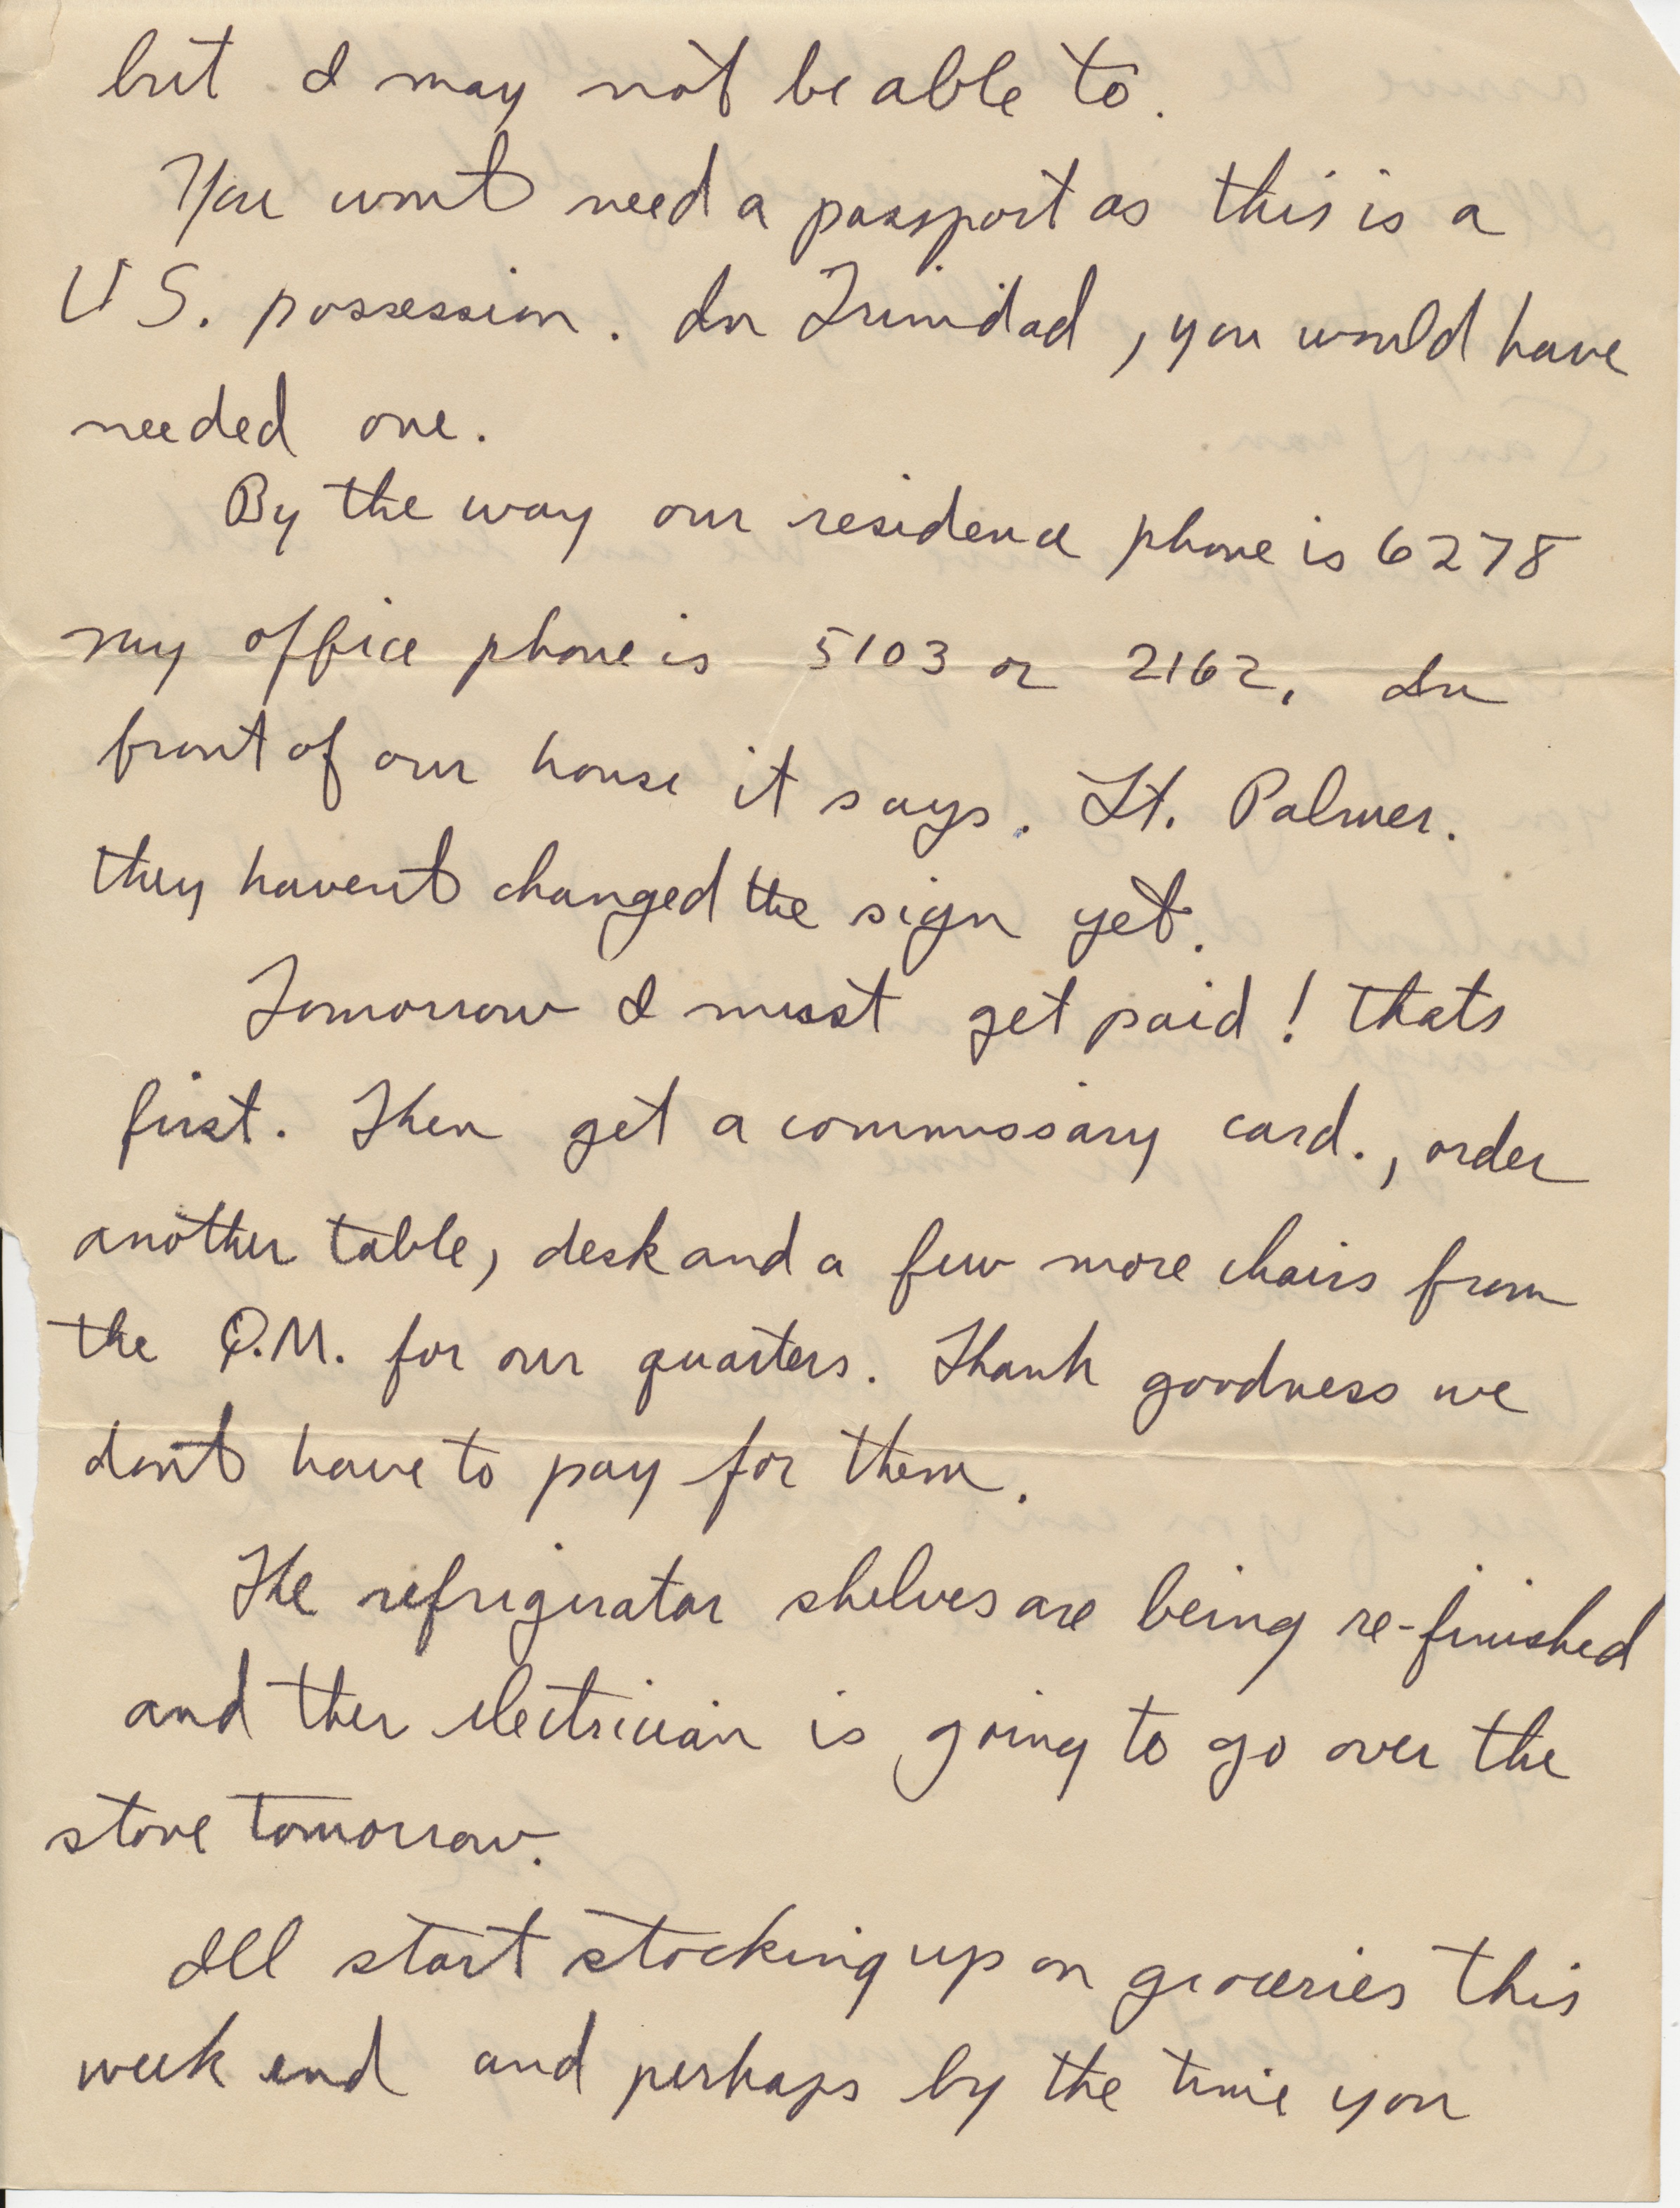 but I may not be able to.
You wont need a passport as this is a
U S. possession. In Trinidad, you would have
needed one.
By the way our residence phone is 6278
my office phone is 5103 or 2162. In
front of our house it says. Lt. Palmer.
they havent changed the sign yet.
Tomorrow I must get paid! thats
first. Then get a commissary card., order
another table, desk and a few more chairs from
the Q.M. for our quarters. Thank goodness we
dont have to pay for them.
The refrigerator shelves are being re-finished
and ther electrician is going to go over the
stove tomorrow.
Ill start stocking up on groceries this
week end and perhaps by the time you